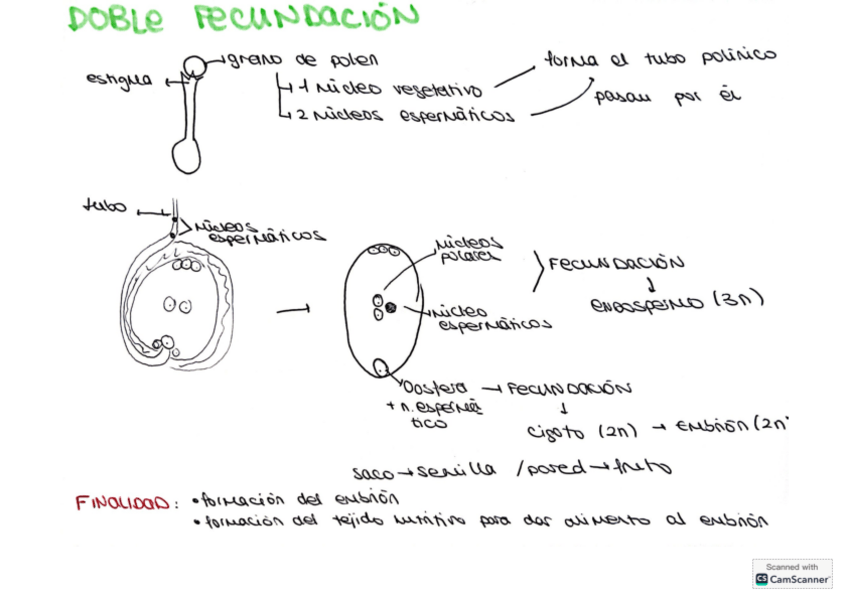 DOBLE FECUNDACIÓN
grano de polen
estigma
1 núcleo vegetativo
forma el tubo polínico
2 núcleos espermáticos
pasan por él
tubo
núcleos
espermáticos
núcleos
polares
FECUNDACIÓN
endospermo (3n)
núcleo
espermáticos
Oosfera → FECUNDACIÓN
+ n. espermá
tico
cigoto (2n) → Embrión (2n
saco → semilla / pared → fruto
FINALIDAD: • formación del embrión
• formación del tejido nutritivo para dar alimento al embrión
Scanned with
CS CamScanner